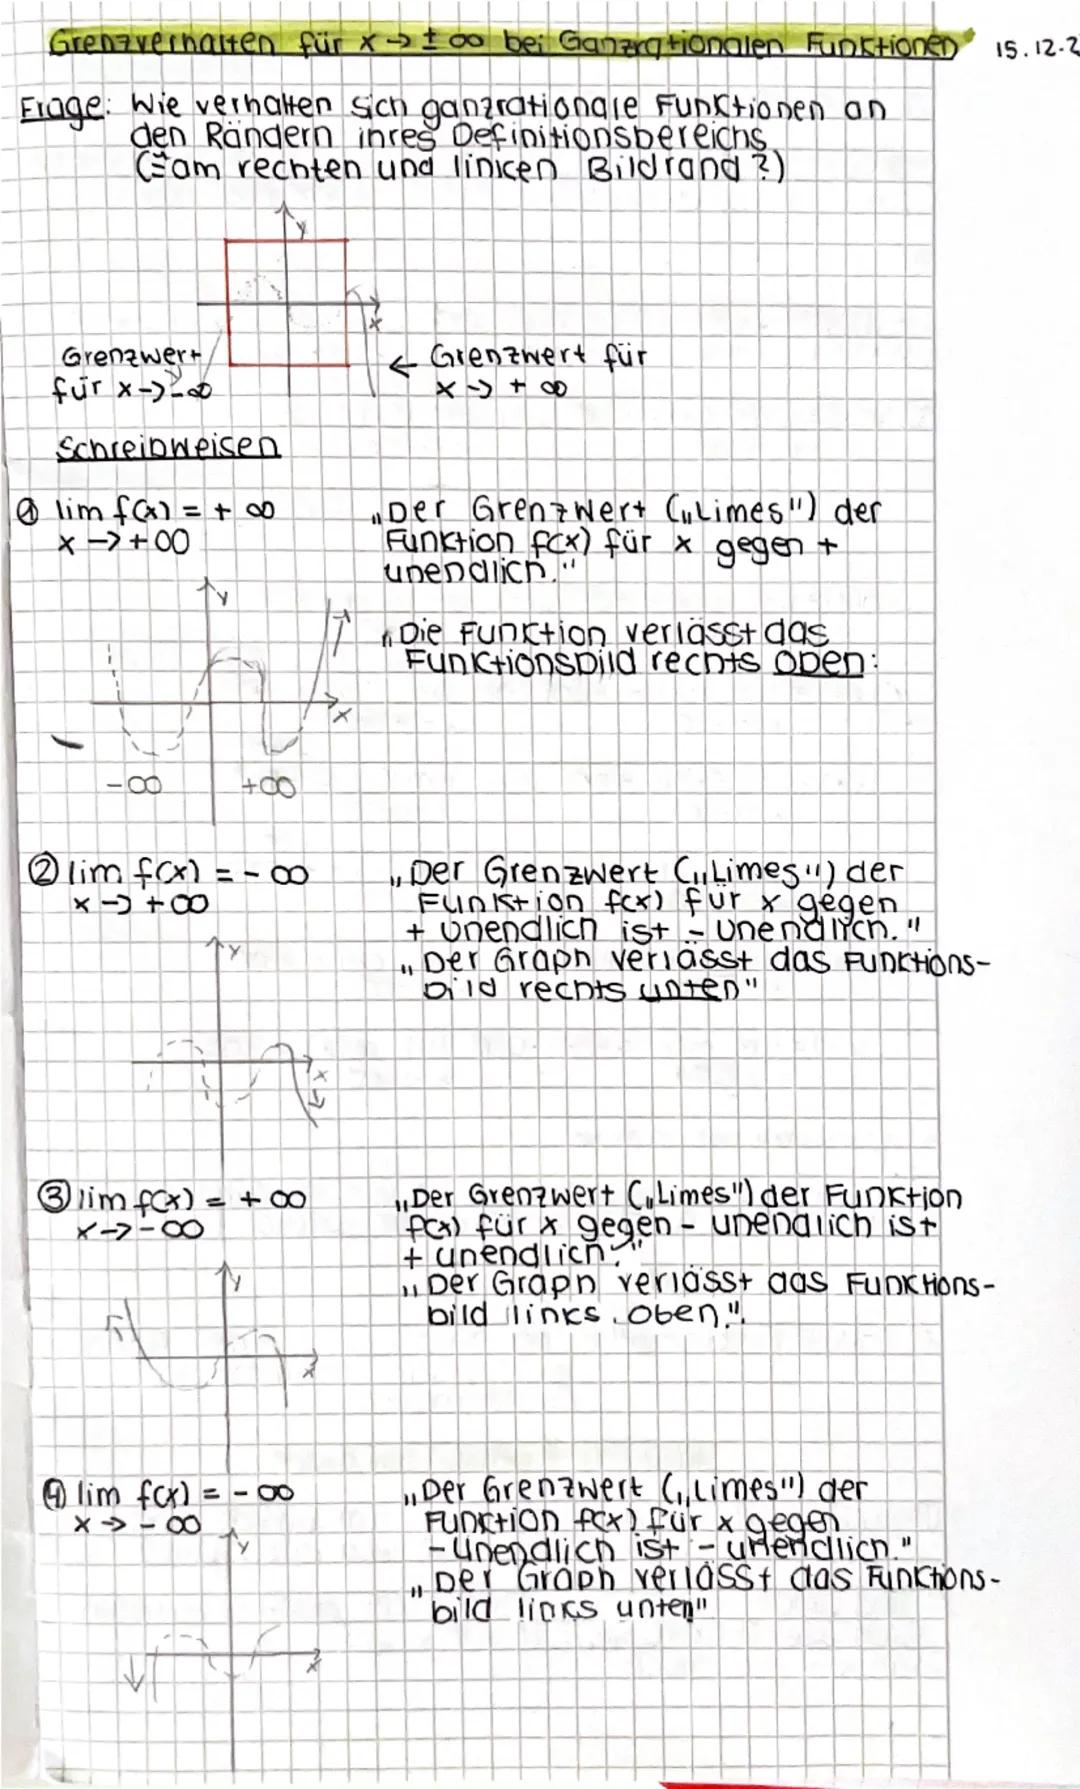 Grenzverhalten für x → ± ∞ bei Ganzrationalen Funktionen 15.12.2
Frage: Wie verhalten sich ganzrationale Funktionen an
den Rändern ihres Definitionsbereichs
(≙am rechten und linken Bildrand?)
y
x
Grenzwert
für x → -∞
← Grenzwert für
x → + ∞
Schreibweisen
① lim f(x) = + ∞
x → +∞
„Der Grenzwert („Limes") der
Funktion f(x) für x gegen +
unendlich."
„Die Funktion verlässt das
Funktionsbild rechts oben:
y
x
-∞ +∞
② lim f(x) = - ∞
x → +∞
„Der Grenzwert („Limes") der
Funktion f(x) für x gegen
+ unendlich ist - unendlich."
„Der Graph verlässt das Funktions-
bild rechts unten"
y
x
③ lim f(x) = + ∞
x → -∞
„Der Grenzwert („Limes") der Funktion
f(x) für x gegen - unendlich ist
+ unendlich."
„Der Graph verlässt das Funktions-
bild links oben."
y
x
④ lim f(x) = - ∞
x → - ∞
„Der Grenzwert („Limes") der
Funktion f(x) für x gegen
- unendlich ist - unendlich."
„Der Graph verlässt das Funktions-
bild links unten"
y
x